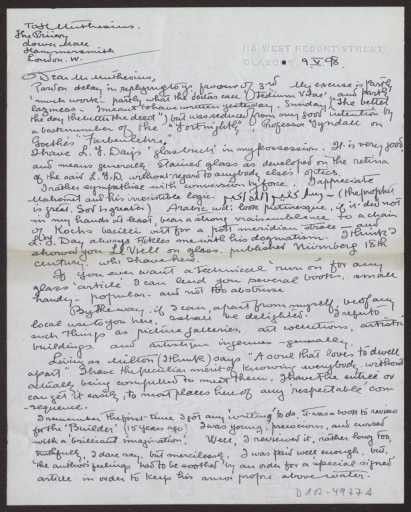 T to H. Muthesius.
The Priory
Lower Mall
Hammersmith
London. W.
118 WEST REGENT STREET
GLASGOW
9.V.98.
Dear Mr Muthesius,
Pardon delay in replying to yr favour of 3rd. My excuse is partly
'much work' partly what the doctors call "Tedium Vitae", and partly
laziness. I meant to have written yesterday, Sunday ("The better
the day the better the deed") but was seduced from my good intention by
a back number of the "Fortnightly" Professor Tyndall on
Goethe's Farbenlehre.
I have L. F. Day's 'glass book' in my possession. It is very good
and means generally Stained glass as developed on the retina
of the said L.F.D. without regard to anybody else's optics.
I rather sympathise with conversion by force. I appreciate
Mahomet and his irresistible logic (The prophet
is great, God is greater) Arabic will look picturesque, if it did not
in my hands at least, bear a strong resemblance to a chain
of Koch's bacilli out for a post meridian stroll
L. F. Day always tickles me with his dogmatism. I think I
showed you Le Vieil on glass published Nürnberg 18th
century, wh. I have here.
If you ever want a technical 'run on' for any
glass article I can lend you several books, small
handy - popular - and not too abstruse
By the way, if I can, apart from myself, be of any
local use to you here, I shall be delighted. I refer to
such things as picture galleries, art collections, artistic
buildings and artistique ingenues generally.
Living as Milton (I think) says "A soul that loves to dwell
apart" I have the peculiar merit of knowing everybody without
actually being compelled to meet them. I have the entrée or
can get it easily, to most places here of any respectable con-
-sequence.
I remember the first time I got any 'writing' to do, it was a book to review
for the 'Builder' (15 years ago) I was young, precocious, and cursed
with a brilliant imagination. Well, I reviewed it, rather long too,
truthfully, I dare say, but mercilessly. I was paid well enough, but,
the author's feelings had to be soothed by an order for a special signed
article in order to keep his amour propre above water.
D 102-4927 A